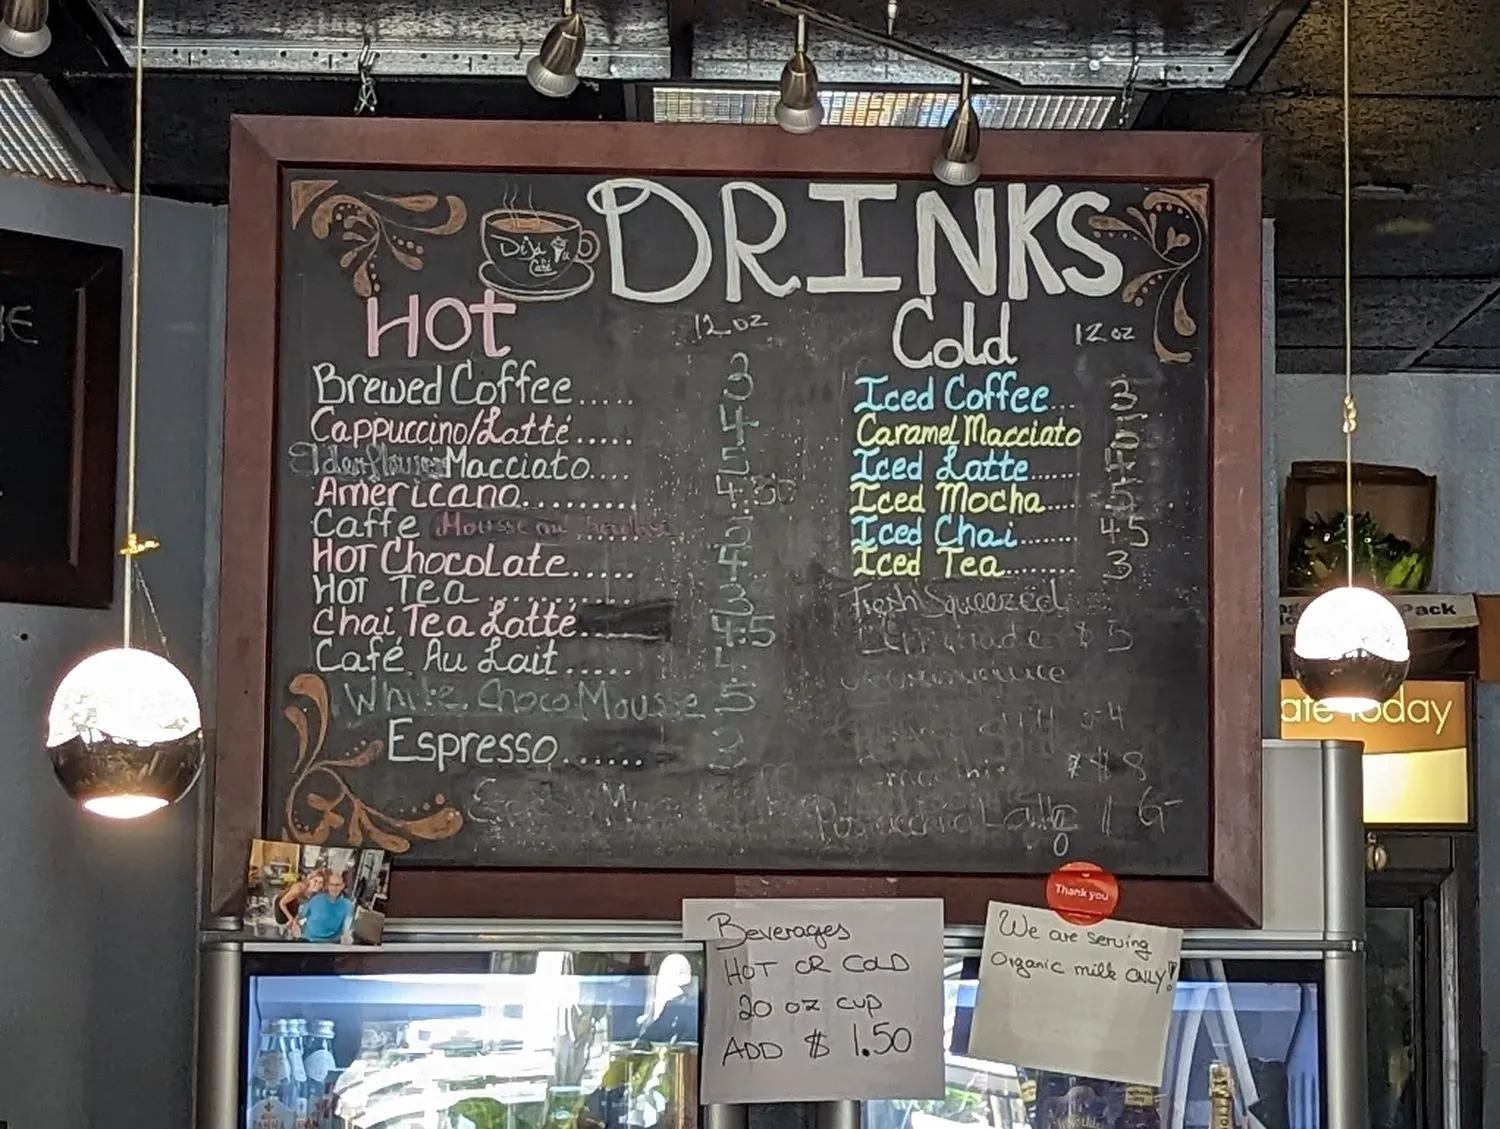 DRINKS
Deja Vu
Café
Hot 12 oz
Brewed Coffee..... 3
Cappuccino/Latté..... 4
Elderflower Macciato....
Americano......... 4.50
Caffe Mousse au ........ 5
HOT Chocolate..... 4
HOT Tea............ 3
Chai Tea Latté 4.5
Café Au Lait..... 4
White Choco Mousse 5
Espresso...... 3
Cold 12 oz
Iced Coffee... 3
Caramel Macciato 5
Iced Latte...... 4
Iced Mocha.... 5
Iced Chai........ 4.5
Iced Tea......... 3
Fresh Squeezed
Lemonade $5
$8
Latte
Beverages
HOT OR COLD
20 oz cup
ADD $ 1.50
Thank you
We are serving
Organic milk ONLY!
Pack
ate today